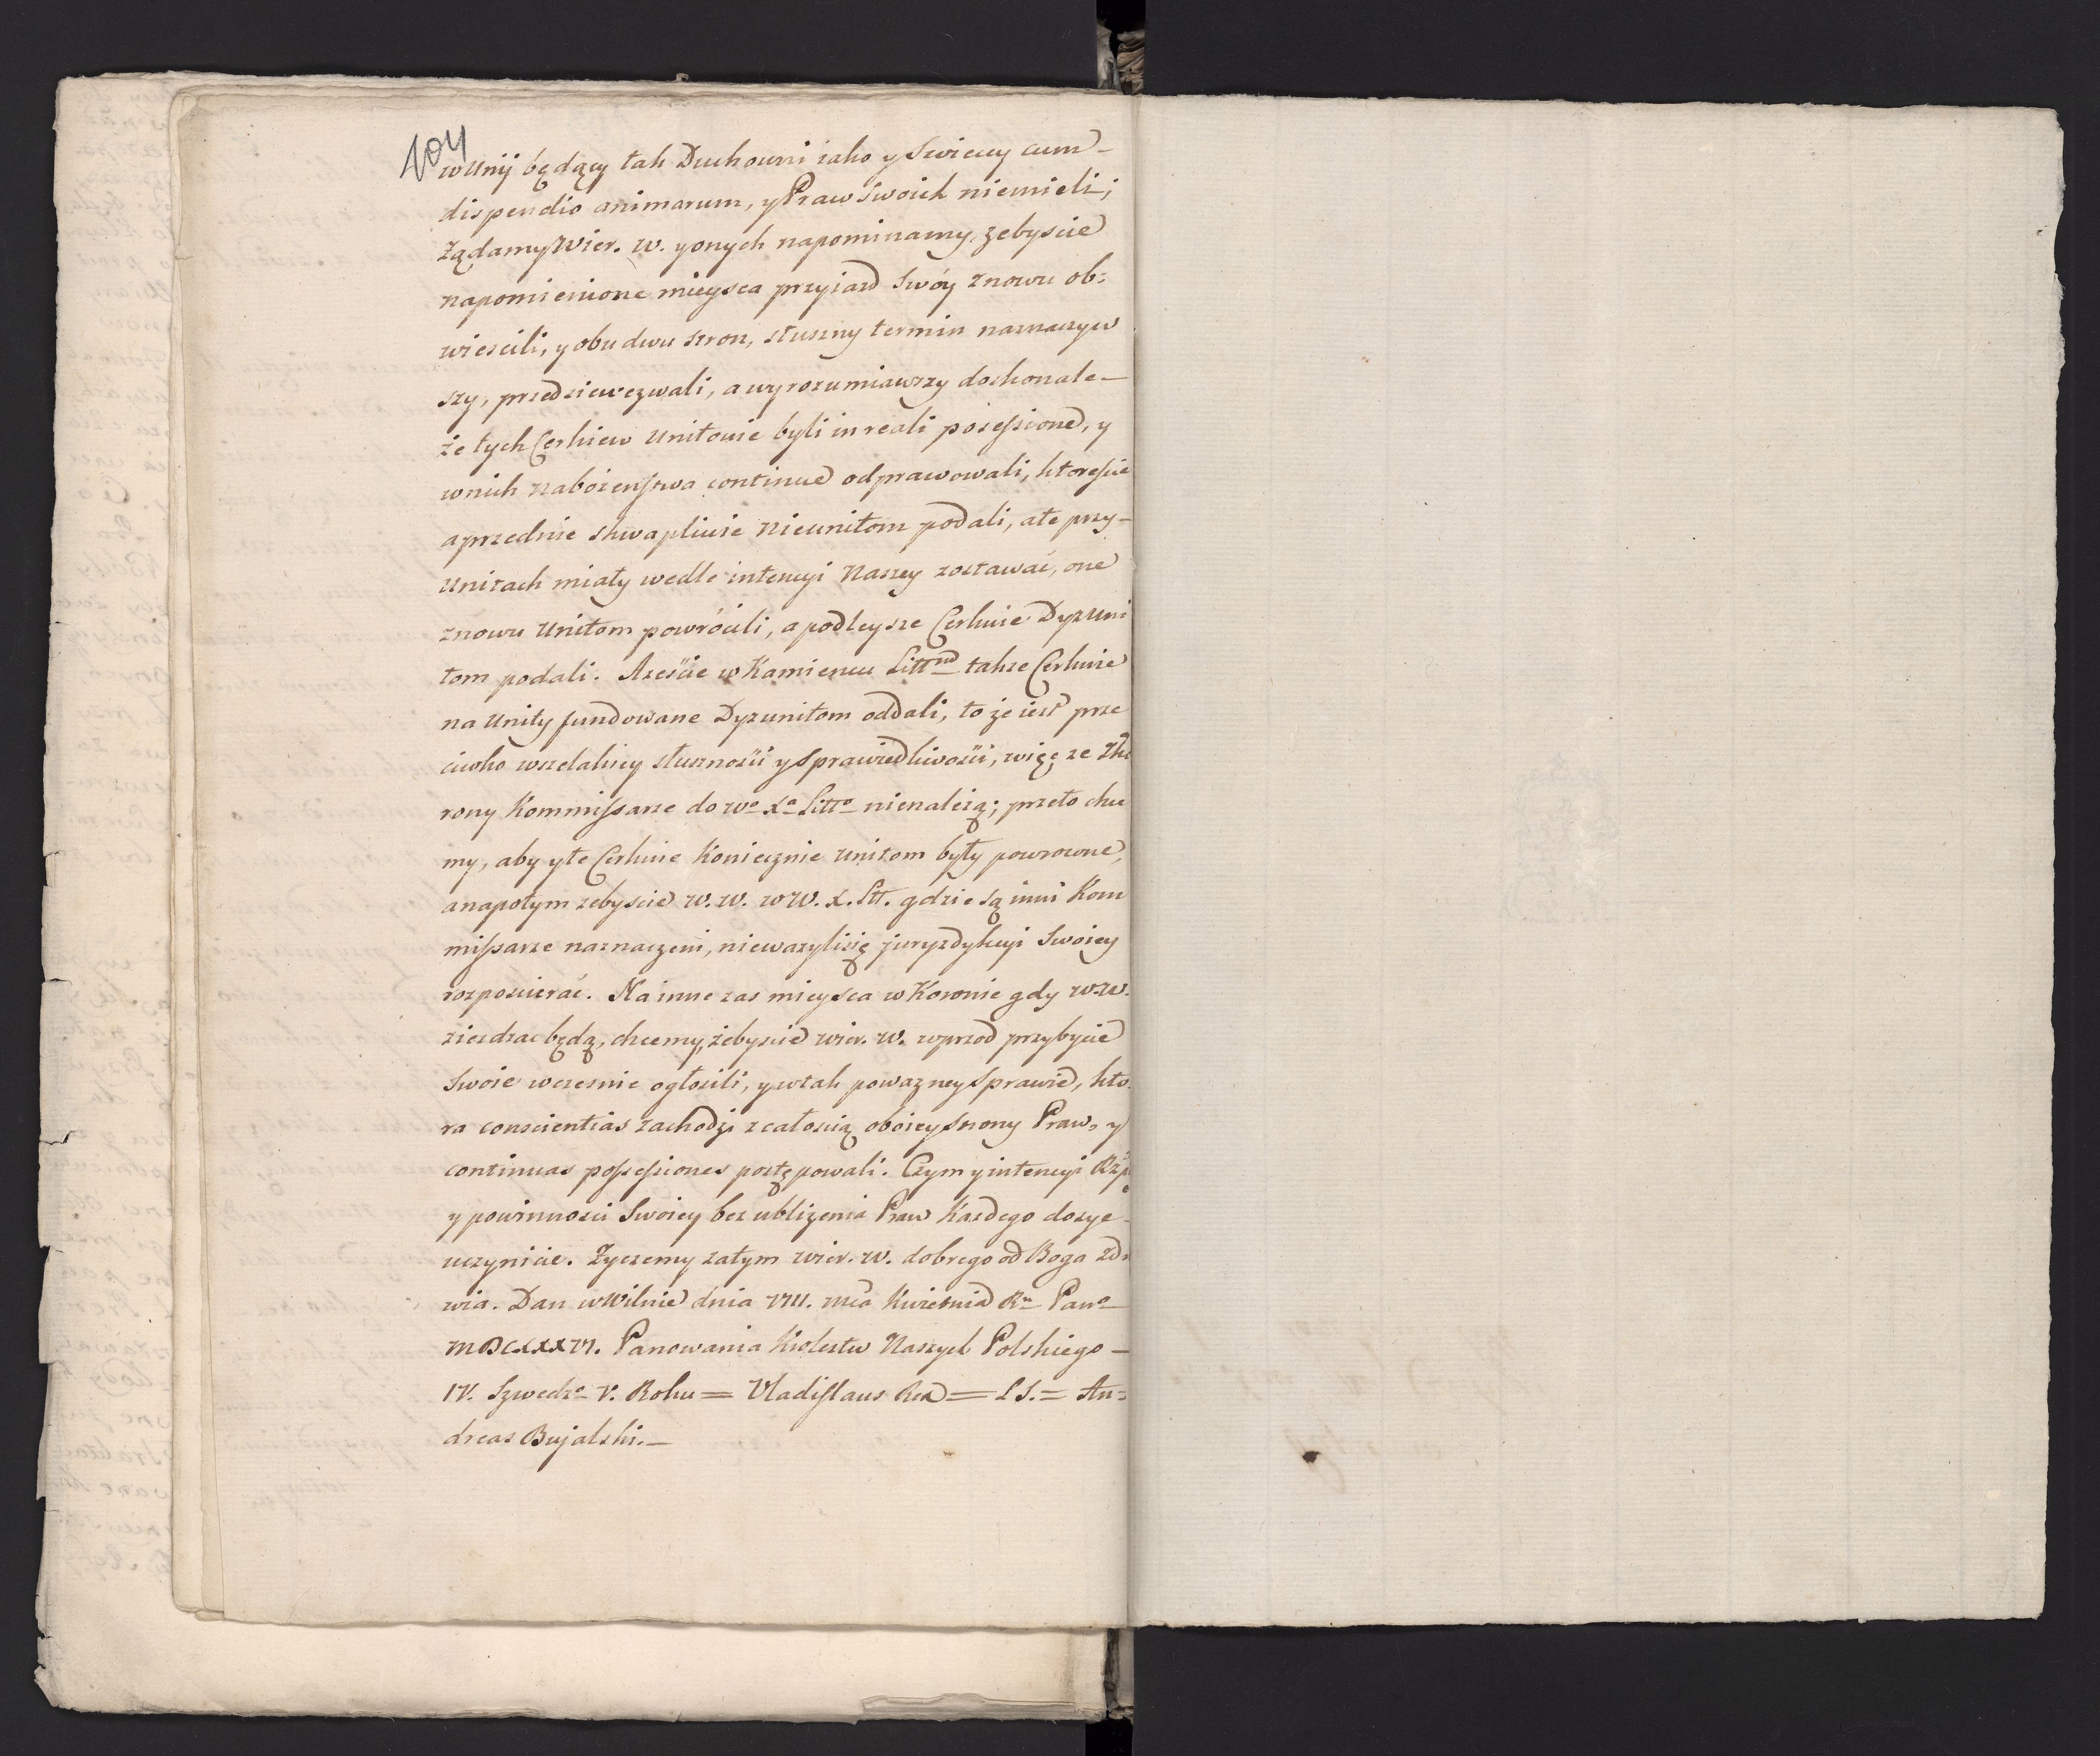 104
w Unij będący tak Duchowni iako y Swieccy cum-
dispendio animarum, y Praw swoich niemieli;
Żądamy Wier. W. y onych napominamy, żebyscie
napomienione mieysca przyiazd Swóy znowu ob=
wiescili, y obu dwu stron, słuszny termin naznaczyw
szy, przed siewezwali, a wyrozumiawszy doskonale-
że tych Cerkiew Unitowie byli in reali possessione, y
w nich Nabożenstwa continue odprawowali, ktoreście
a przednie skwapliwie Nieunitom podali, ale przy-
Unitach miały wedle intencyi Naszey zostawać, one
znowu Unitom powróciili, a podleysze Cerkwie Dyzuni
tom podali. A zeście w Kamiencu Litt takze Cerkwie
na Unity fundowane Dyzunitom oddali, to że iest prze
ciwko wszelakiey słusznosci y Sprawiedliwosci, więc ze Zko
rony Kommissarze do Wo Xa Litto nienależą; przeto chce
my, aby y te Cerkwie Koniecznie Unitom były powrocone,
a napotym zebyscie W. W. w W. X. Litt. gdzie są inni Kom
missarze naznaczeni, nieważyli się juryzdykcyi Swoiey
rozposcierać. Na inne zas mieysca w Koronie gdy W. W.
ziezdzac będą, chcemy, żebyscie Wier. W. wprzod przybycie
Swoie wczesnie ogłosili, y w tak powazney Sprawie, kto
ra conscientias zachodzi z całoscią oboiey strony Praw, y
continuas possessiones postępowali. Czym y intencyi Rzp
y powinnosci Swoiey bez ubliżenia Praw Kazdego dosyc-
uczynicie. Życzemy zatym Wier. W. dobrego od Boga zdr
wia. Dan w Wilnie dnia VIII. mca Kwietnia Ru Pano
MDCXXXVI. Panowania Krolestw Naszych Polskiego-
IV. Szwedzo V. Roku = Vladislaus Rex = L S. = An=
dreas Bujalski.-